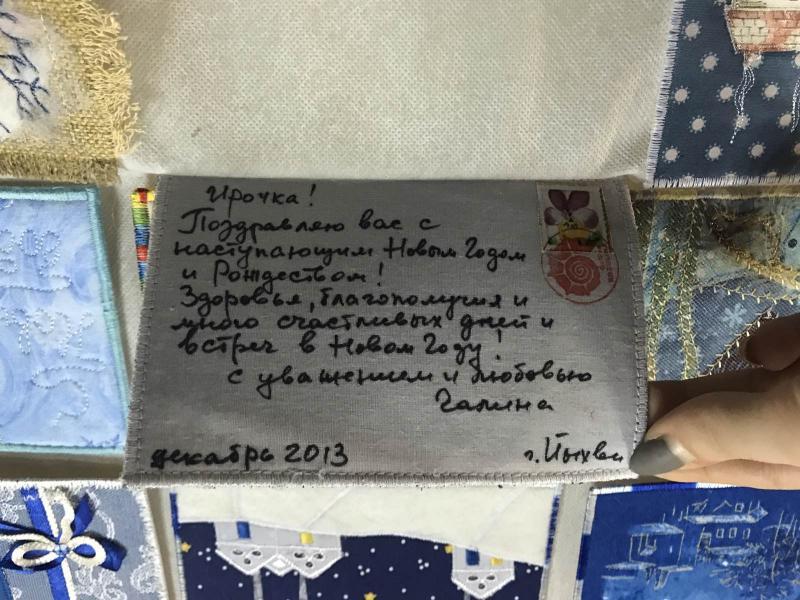 Ирочка!
Поздравляю вас с
наступающим Новым Годом
и Рождеством!
Здоровья, благополучия и
много счастливых дней и
встреч в Новом Году!
с уважением и любовью
Галина
декабрь 2013
г. Йыхви